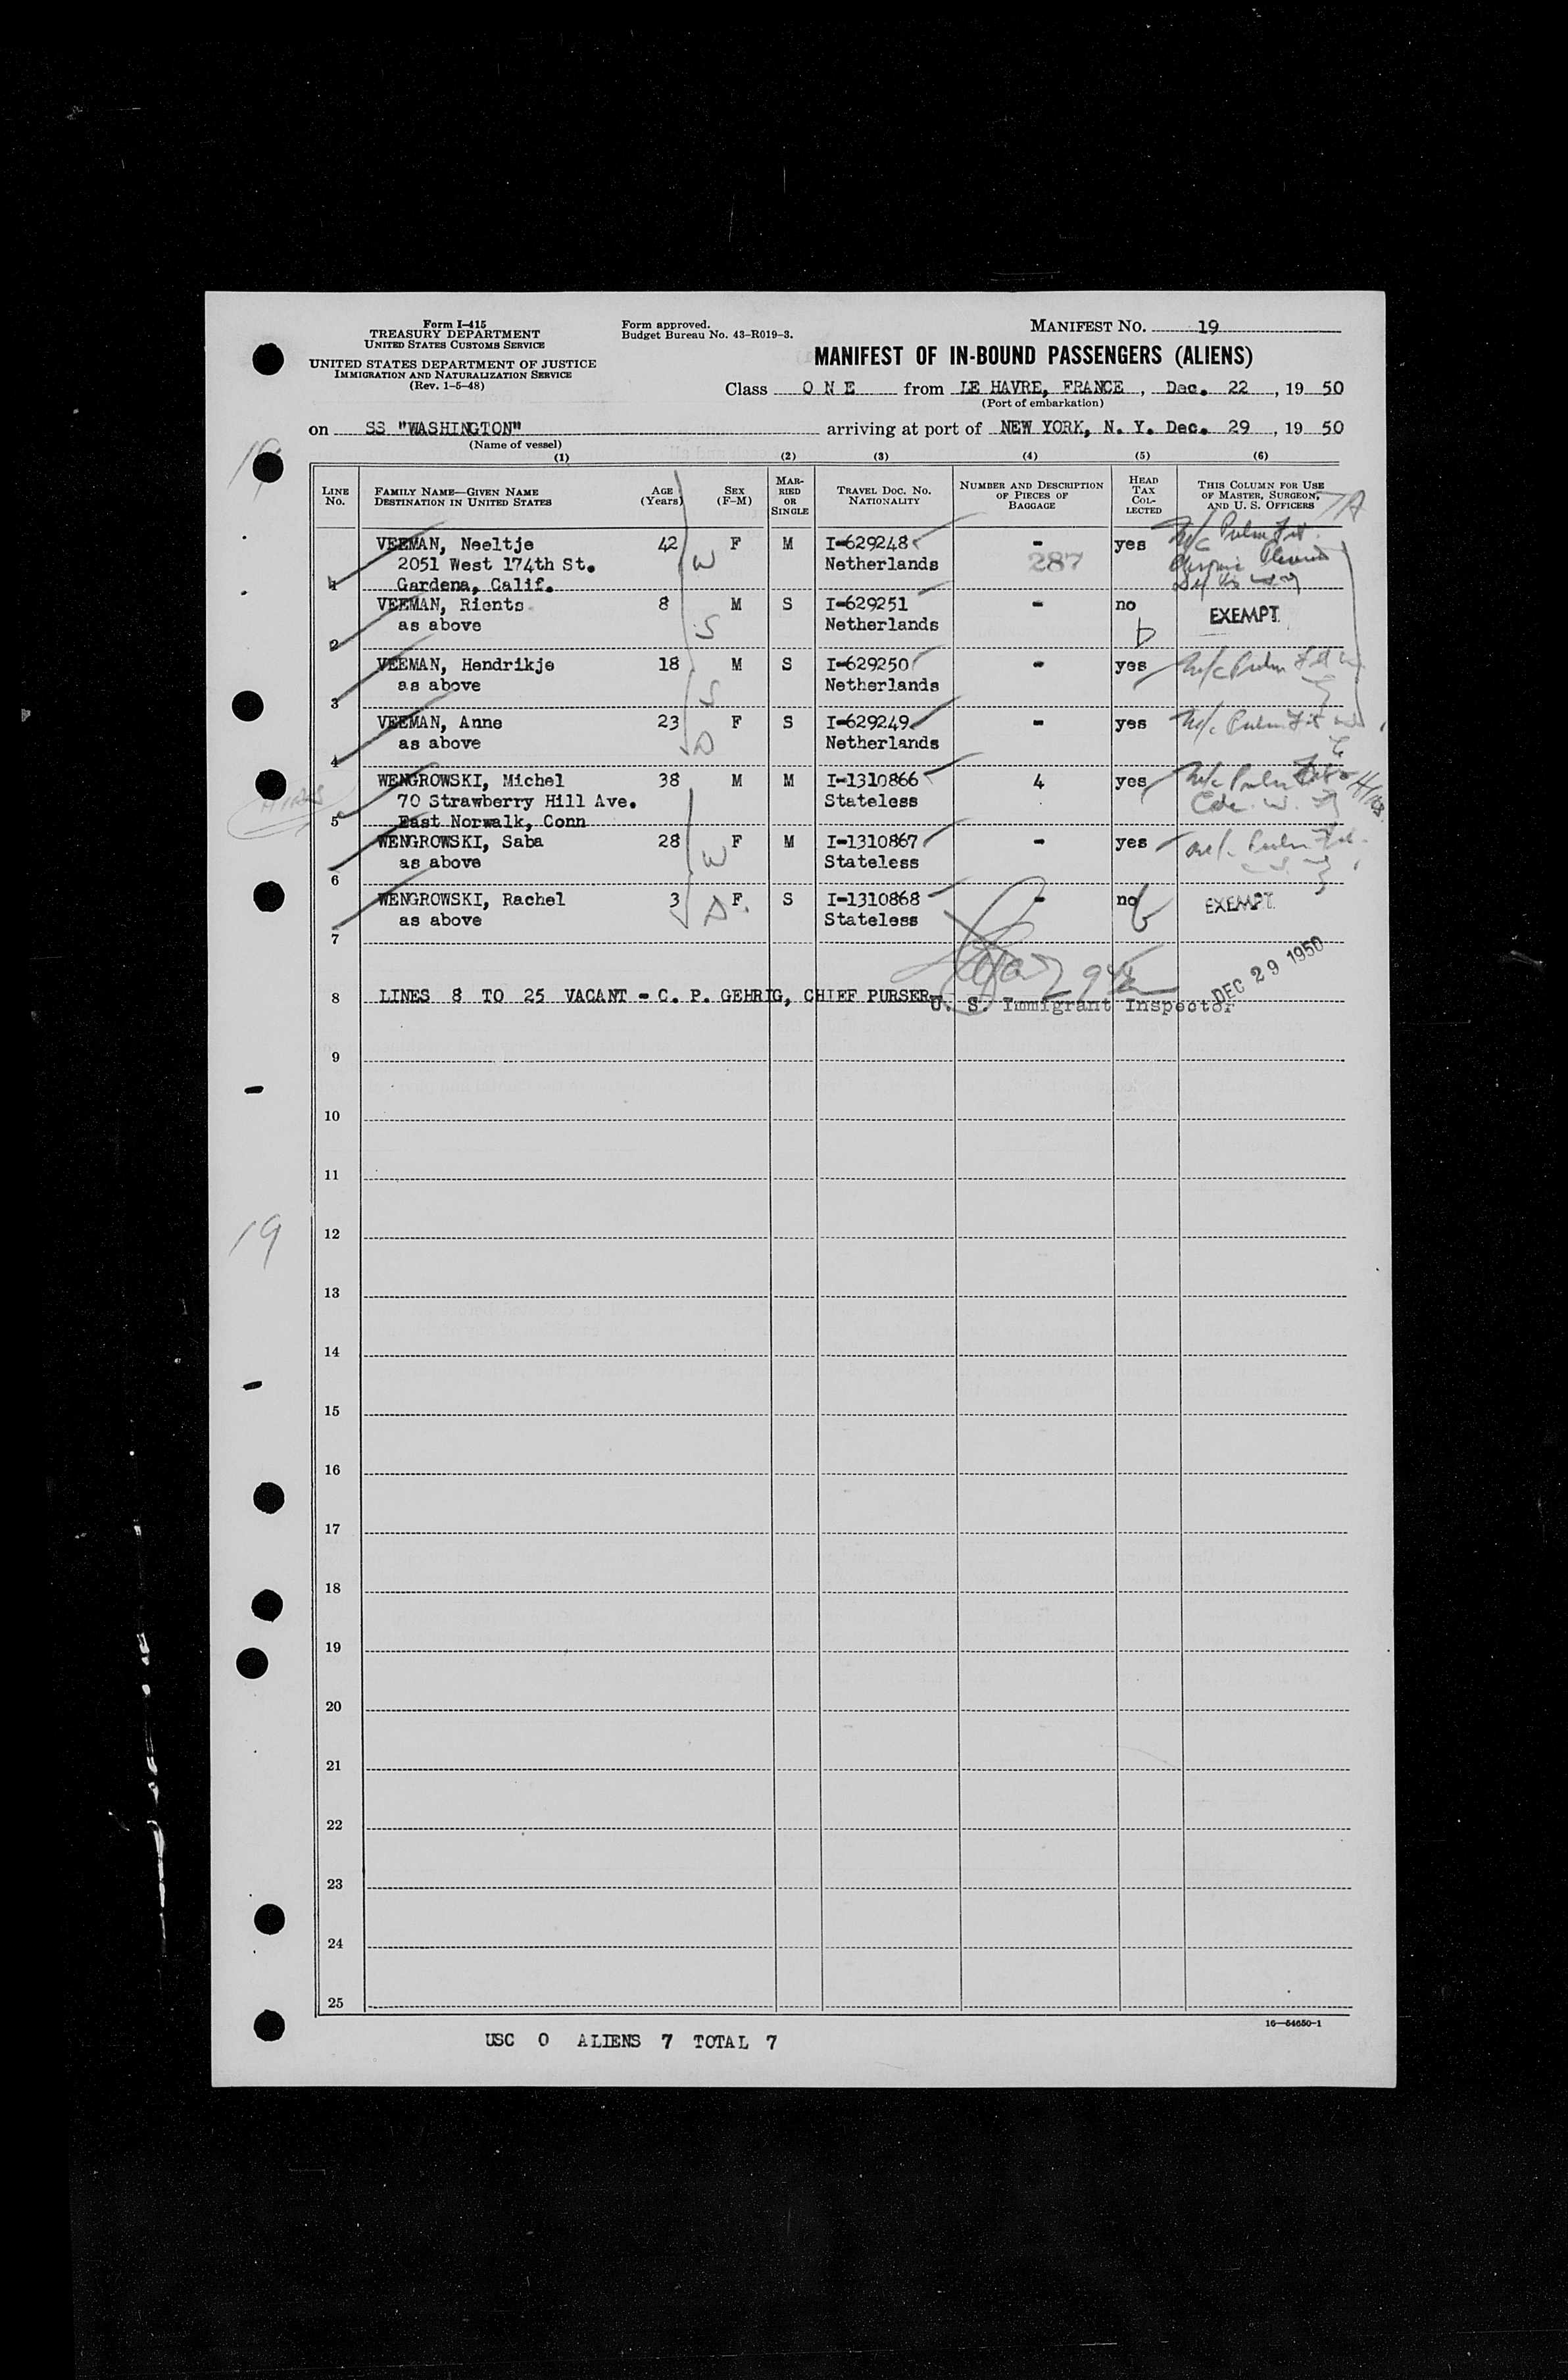 Form I-415
TREASURY DEPARTMENT
UNITED STATES CUSTOMS SERVICE
UNITED STATES DEPARTMENT OF JUSTICE
IMMIGRATION AND NATURALIZATION SERVICE
(Rev. 1-5-48)
Form approved.
Budget Bureau No. 43-R019-3.
MANIFEST NO. 19
MANIFEST OF IN-BOUND PASSENGERS (ALIENS)
Class O N E from LE HAVRE, FRANCE, Dec. 22, 19 50
(Port of embarkation)
on SS "WASHINGTON" arriving at port of NEW YORK, N. Y. Dec. 29, 19 50
(Name of vessel)
(1) (2) (3) (4) (5) (6)
LINE No. FAMILY NAME—GIVEN NAME DESTINATION IN UNITED STATES AGE (Years) SEX (F-M) MARRIED OR SINGLE TRAVEL DOC. NO. NATIONALITY NUMBER AND DESCRIPTION OF PIECES OF BAGGAGE HEAD TAX COLLECTED THIS COLUMN FOR USE OF MASTER, SURGEON, AND U. S. OFFICERS
VEEMAN, Neeltje 42 W F M I-629248 - yes
2051 West 174th St. Netherlands 287
1 Gardena, Calif.
VEEMAN, Rients 8 M S I-629251 - no EXEMPT
2 as above S Netherlands
VEEMAN, Hendrikje 18 M S I-629250 - yes
3 as above S Netherlands
VEEMAN, Anne 23 F S I-629249 - yes
4 as above D Netherlands
WENGROWSKI, Michel 38 M M I-1310866 4 yes
70 Strawberry Hill Ave. Stateless
HIAS
5 East Norwalk, Conn
WENGROWSKI, Saba 28 F M I-1310867 - yes
6 as above W Stateless
WENGROWSKI, Rachel 3 F S I-1310868 - no EXEMPT
7 as above D Stateless
DEC 29 1950
8 LINES 8 TO 25 VACANT - C. P. GEHRIG, CHIEF PURSER
U. S. Immigrant Inspector
9
10
11
12
19
13
14
15
16
17
18
19
20
21
22
23
24
25
16—54650-1
USC 0 ALIENS 7 TOTAL 7